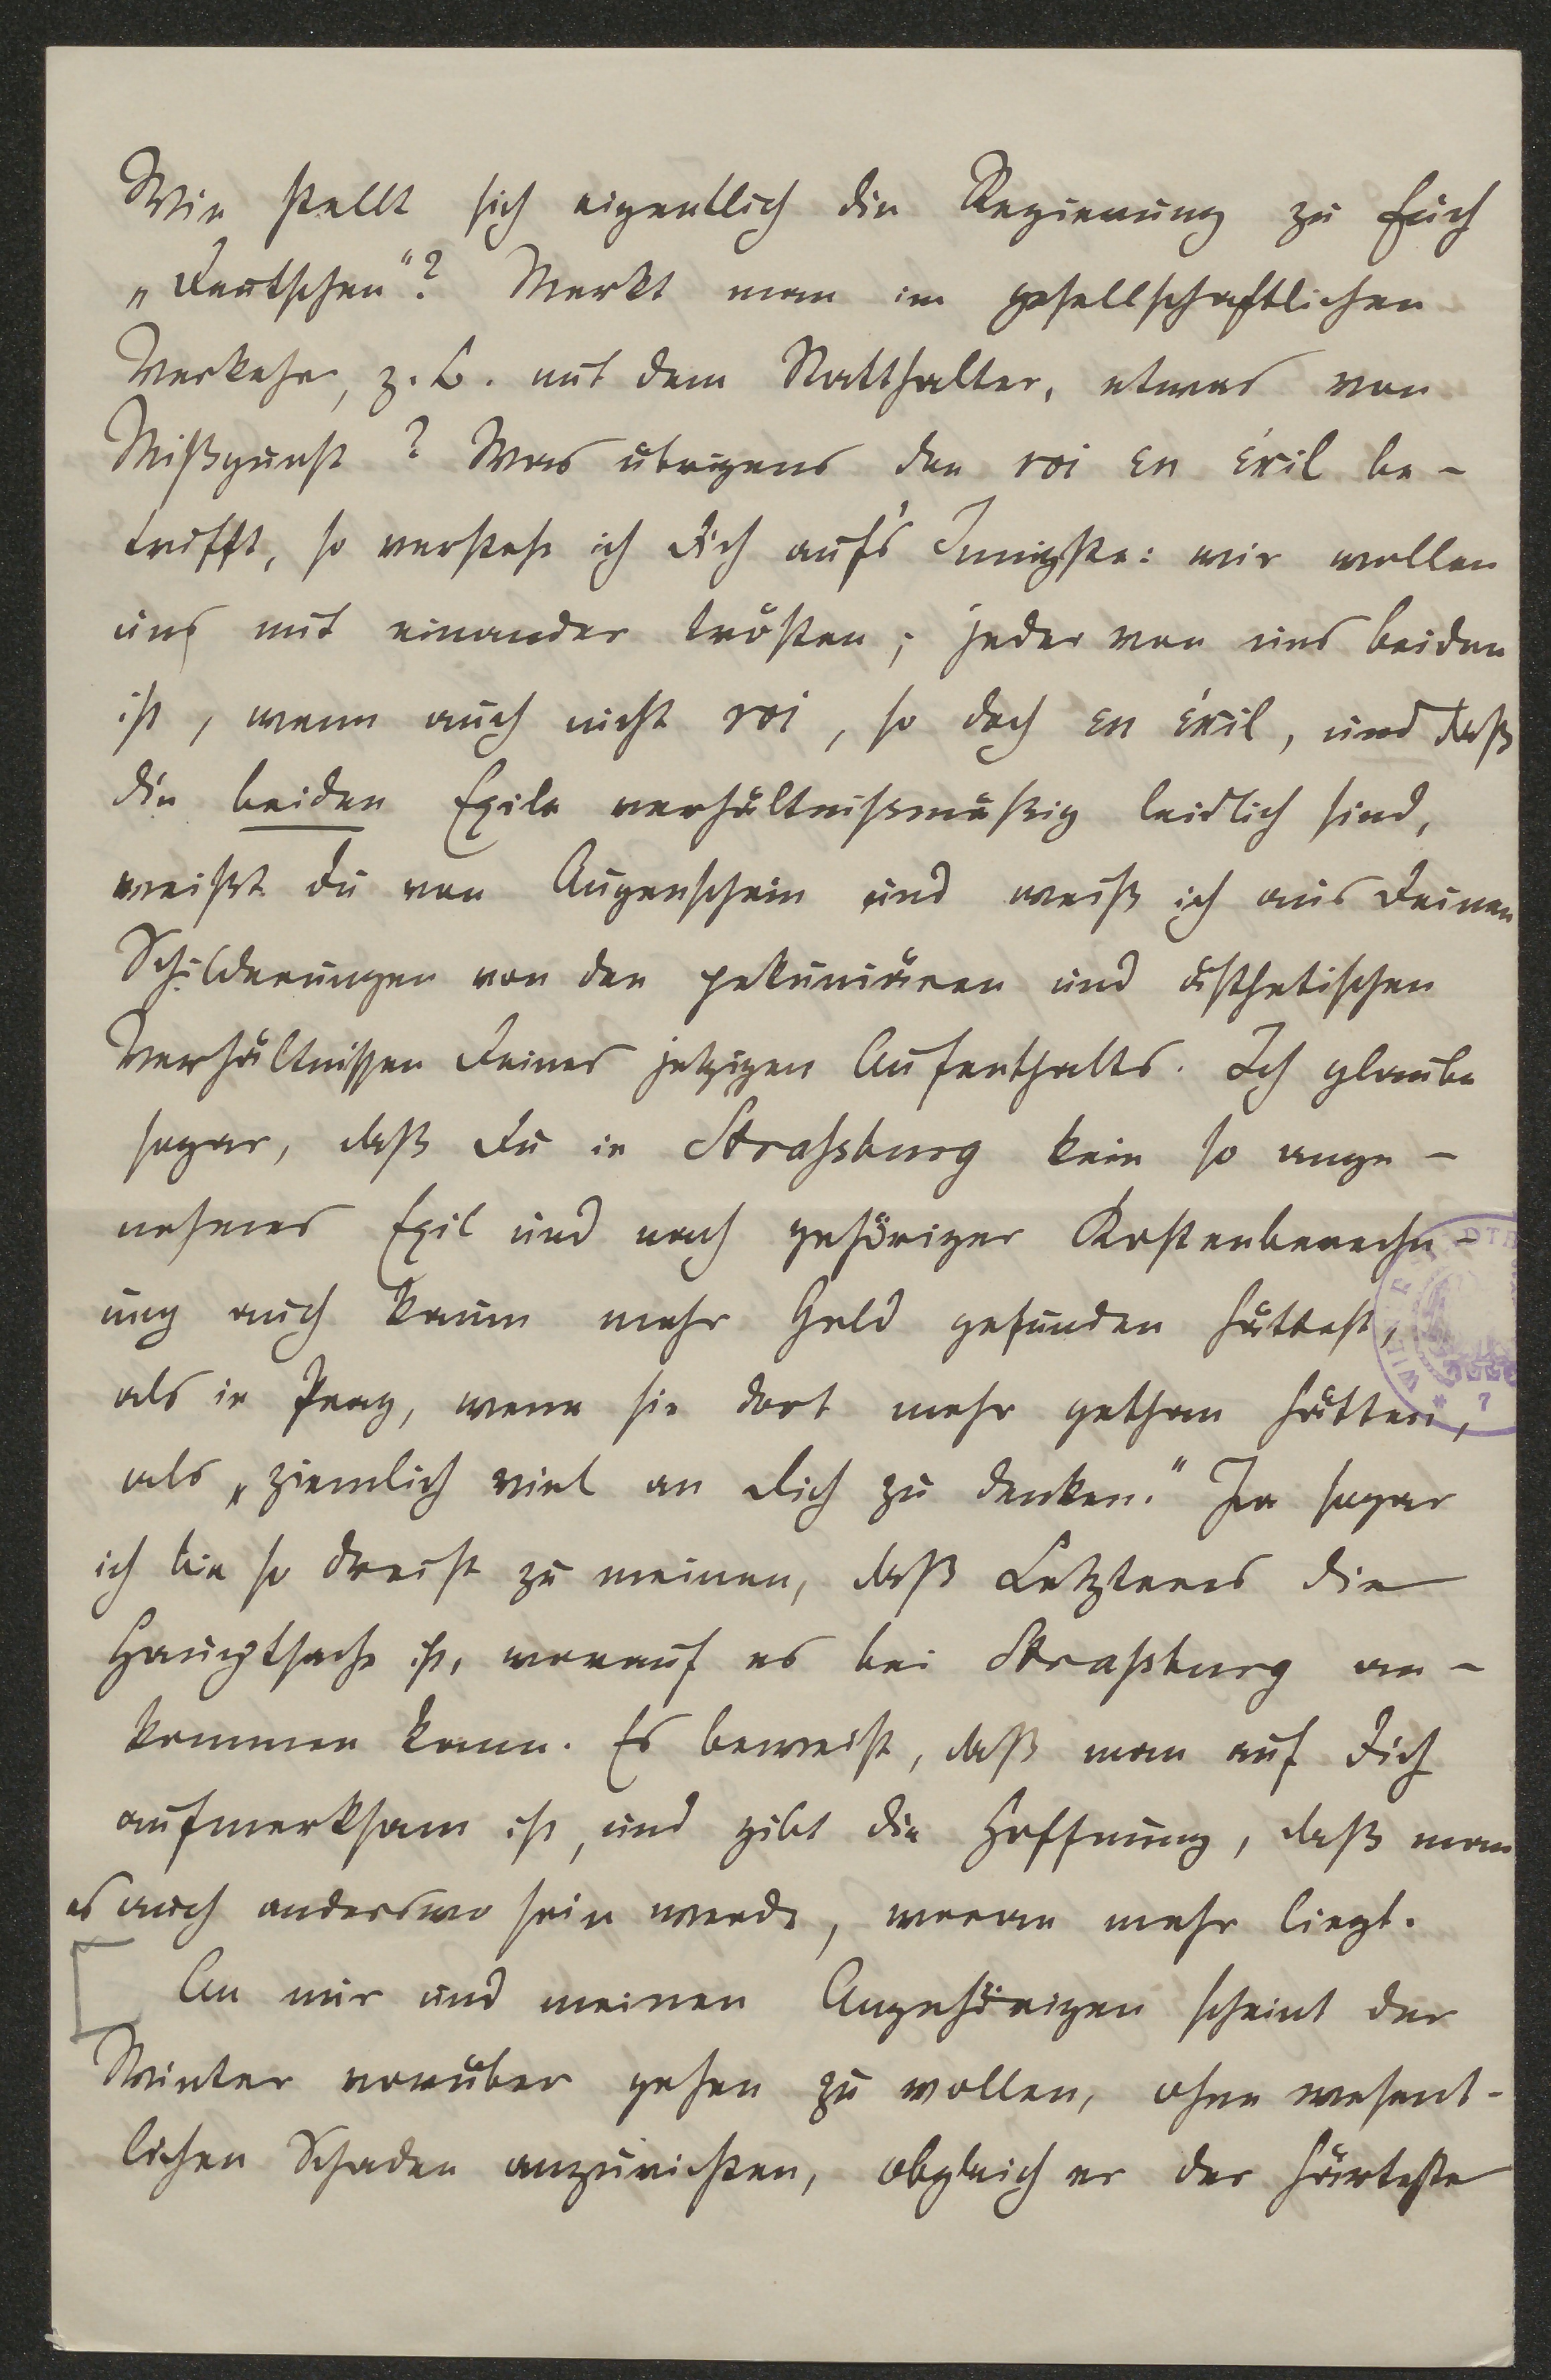 Wie stellt sich eigentlich die Regierung zu Euch
„Deutschen“? Merkt man im gesellschaftlichen
Verkehr, z. B. mit dem Statthalter, etwas von
Mißgunst? Was übrigens den roi en éxil be-
trifft, so verstehe ich Dich auf's Innigste: wir wollen
uns mit einander trösten; jeder von uns beiden
ist, wenn auch nicht roi, so doch en éxil, und daß
die beiden Exile verhältnißmäßig leidlich sind,
weißt Du von Augenschein und weiß ich aus Deinen
Schilderungen von den pekuniären und ästhetischen
Verhältnissen Deines jetzigen Aufenthalts. Ich glaube
sogar, daß Du in Strassburg kein so ange-
nehmes Exil und nach gehöriger Kostenberechn-
ung auch kaum mehr Geld gefunden hättest,
als in Prag, wenn sie dort mehr gethan hätten,
als „ziemlich viel an Dich zu denken.“ Ja sogar
ich bin so dreist zu meinen, daß Letzteres die
Hauptsache ist, worauf es bei Strassburg an-
kommen kann. Es beweist, daß man auf Dich
aufmerksam ist, und gibt die Hoffnung, daß man
es auch anderswo sein werde, woran mehr liegt.
An mir und meinen Angehörigen scheint der
Winter vorüber gehen zu wollen, ohne wesent-
lichen Schaden anzurichten, obgleich er der härteste